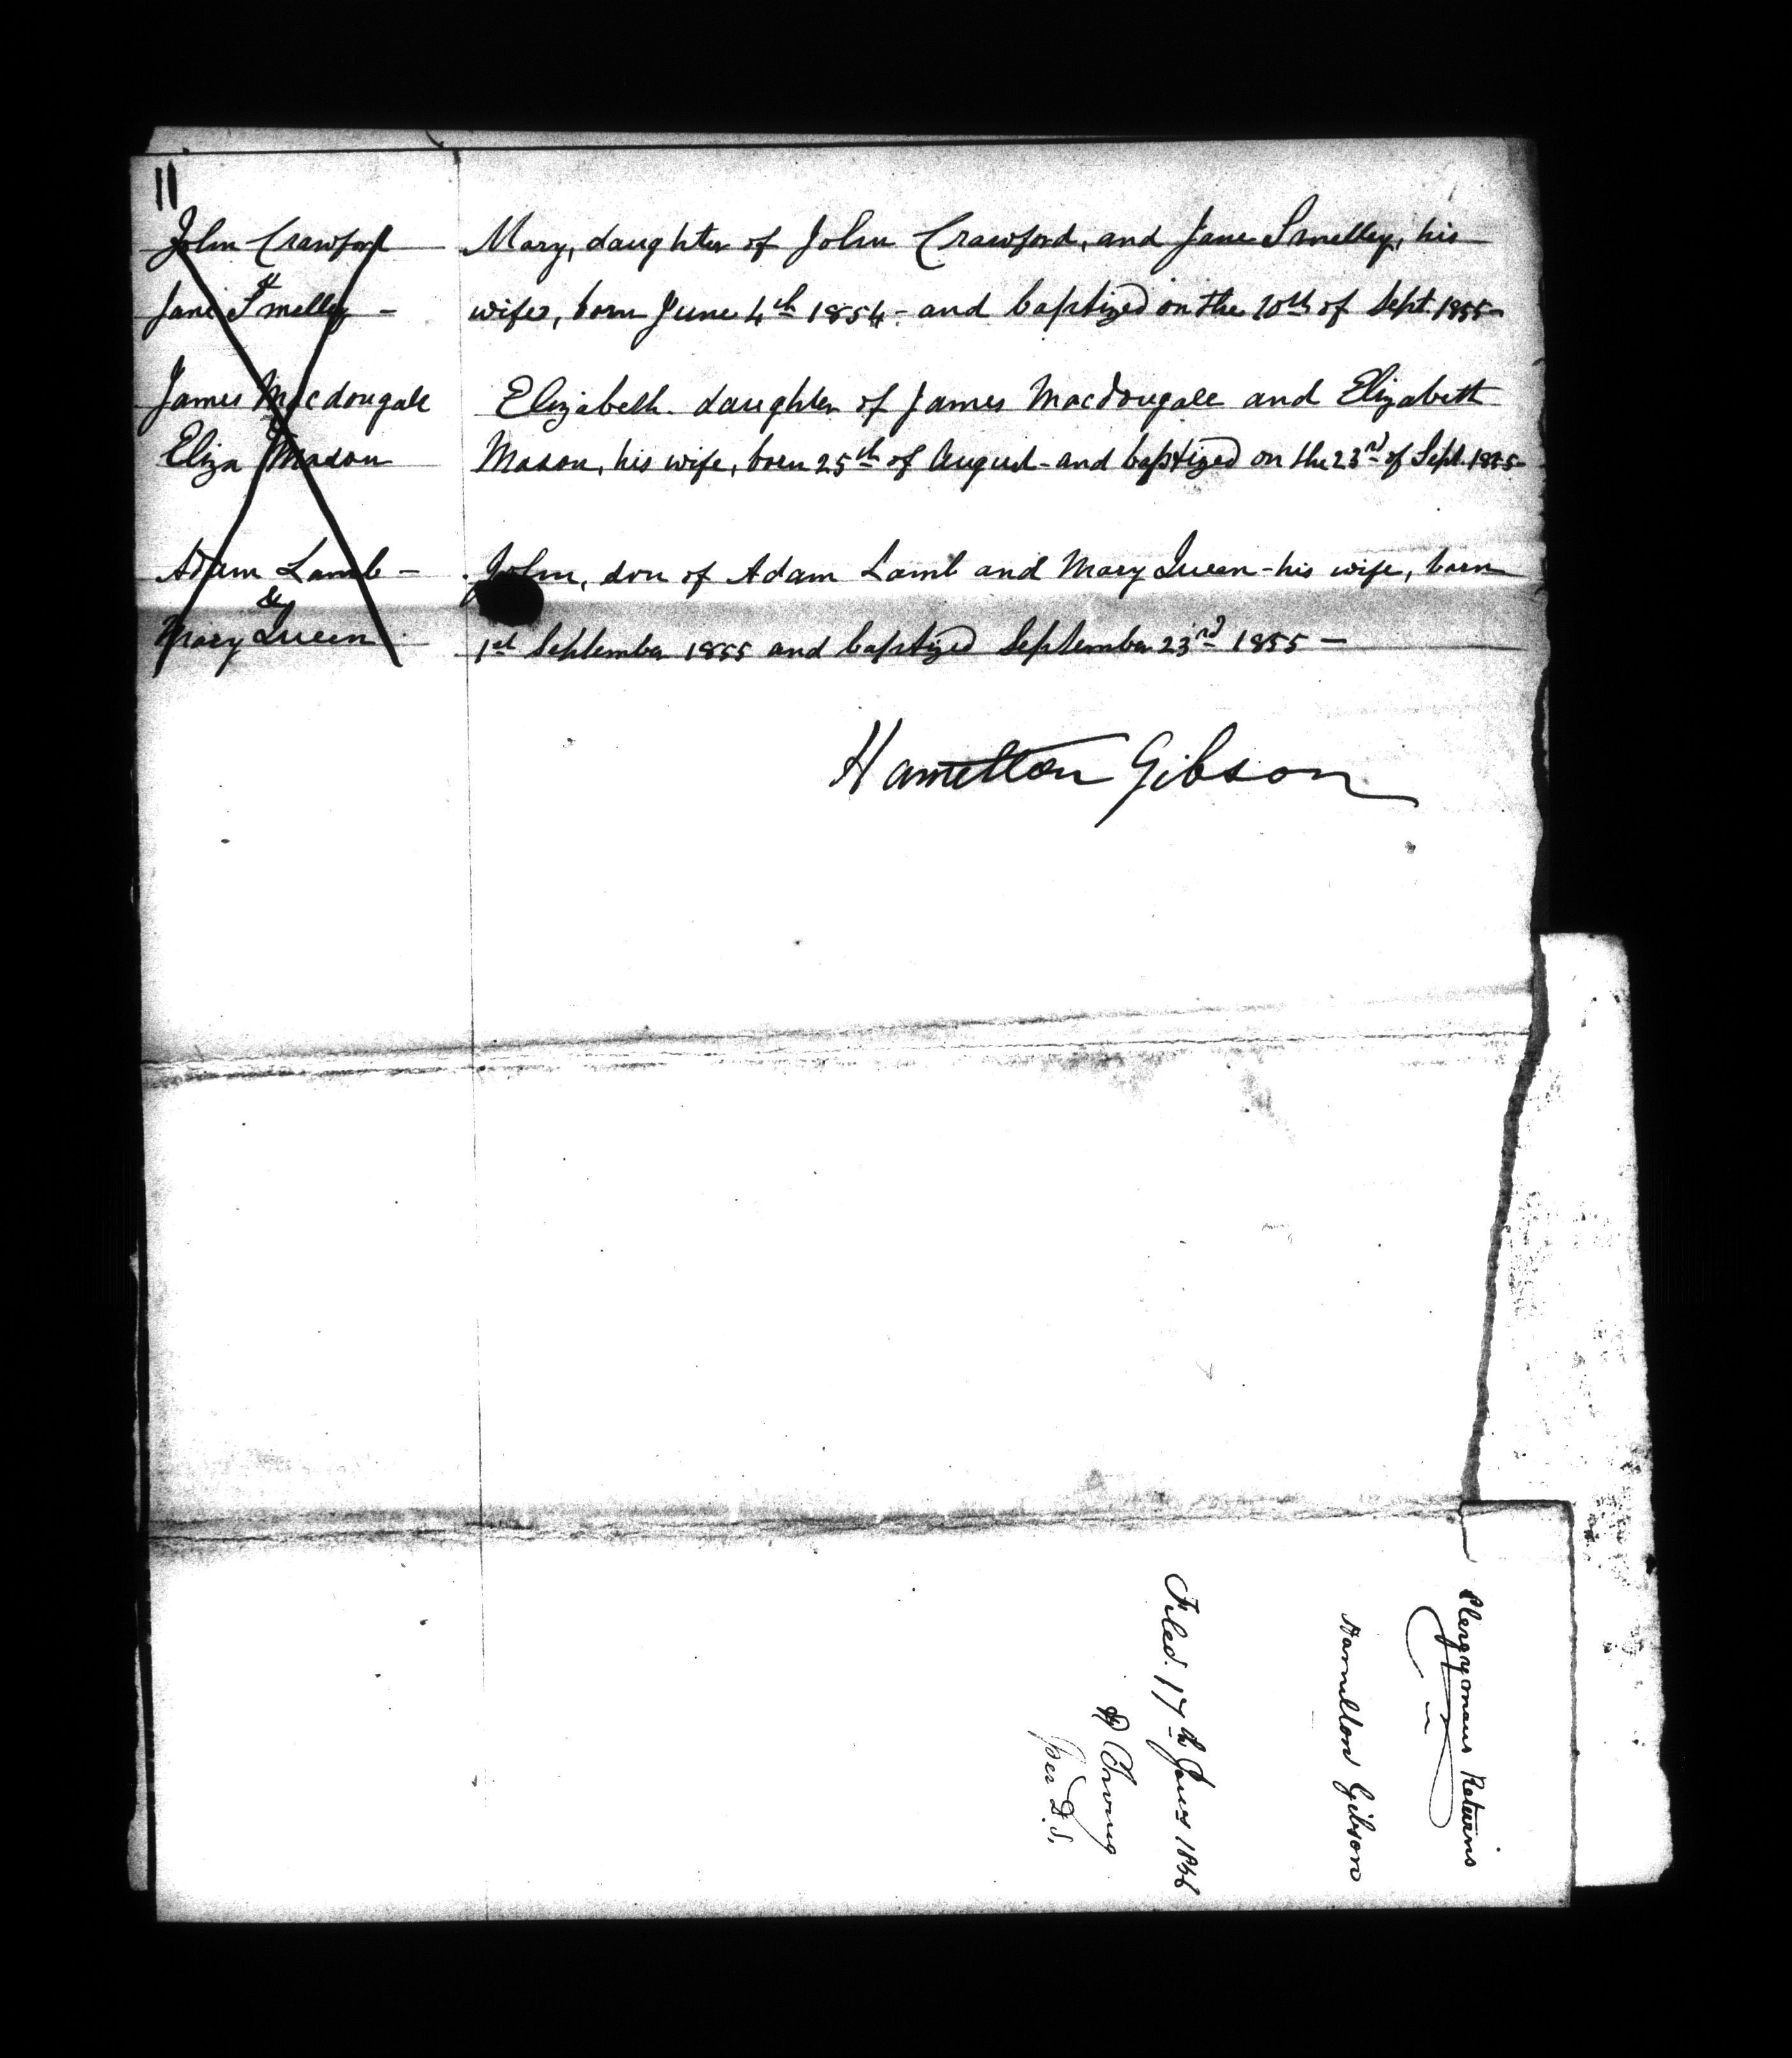 11
John Crawford
&
Jane Smelley -
Mary, daughter of John Crawford, and Jane Smelley, his
wife, born June 4th 1854 - and baptized on the 10th of Sept. 1855 -
James Macdougale
&
Eliza Mason
Elizabeth. daughter of James Macdougale and Elizabeth
Mason, his wife, born 25th of August - and baptized on the 23rd of Sept. 1855 -
Adam Lamb -
&
Mary Queen
John, son of Adam Lamb and Mary Queen - his wife, born
1st September 1855 and baptized September 23rd 1855 -
Hamilton Gibson
Clergymans Returns
Hamilton Gibson
Filed. 17th Jany 1856
per D. S.